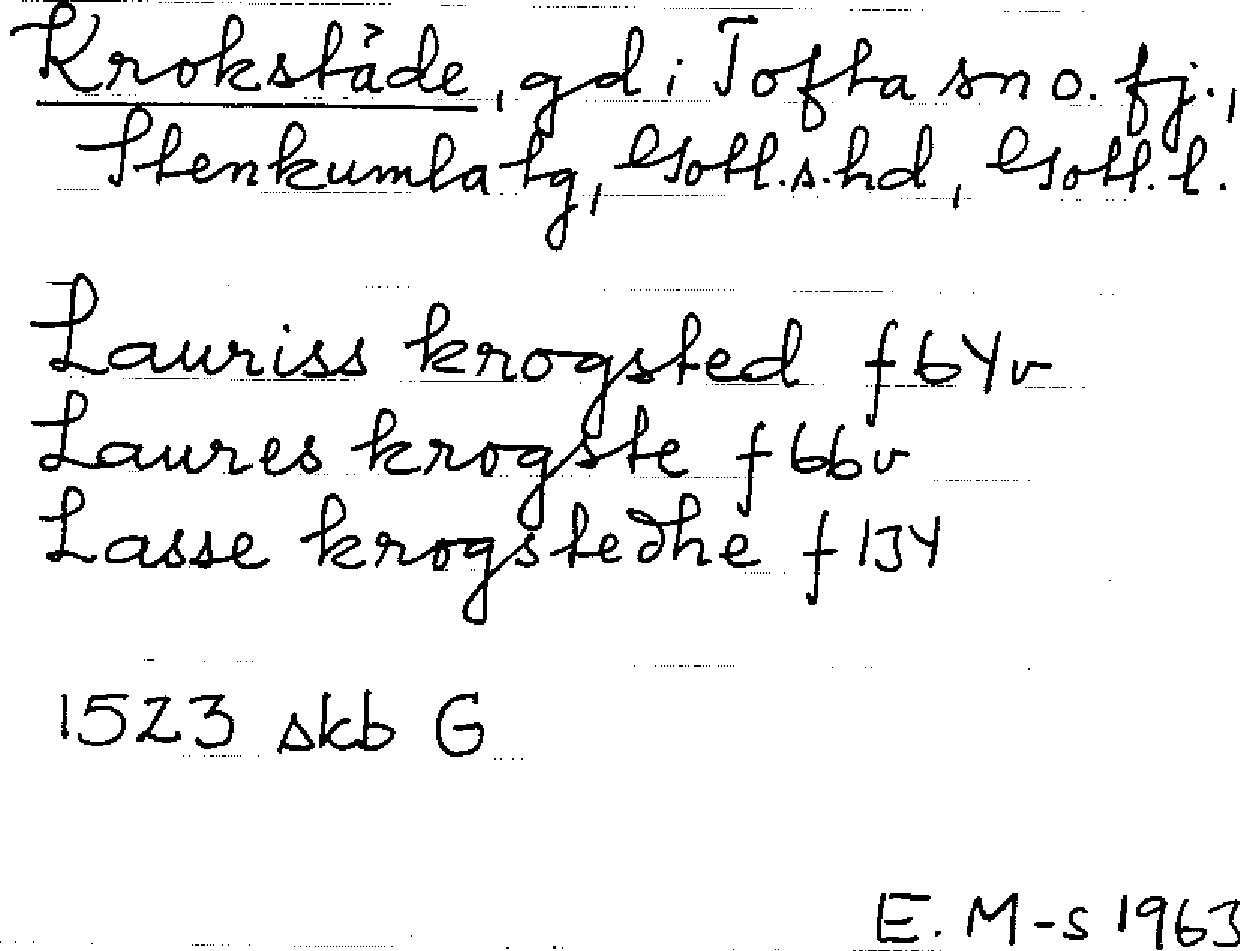 Krokstäde, gd i Tofta sn o. fj.,
Stenkumla tg, Gotl.s.hd, Gotl.l.
Lauriss krogsted f 64v
Laures krogste f 66v
Lasse krogstedhe f 134
1523 skb G
E. M-s 1963